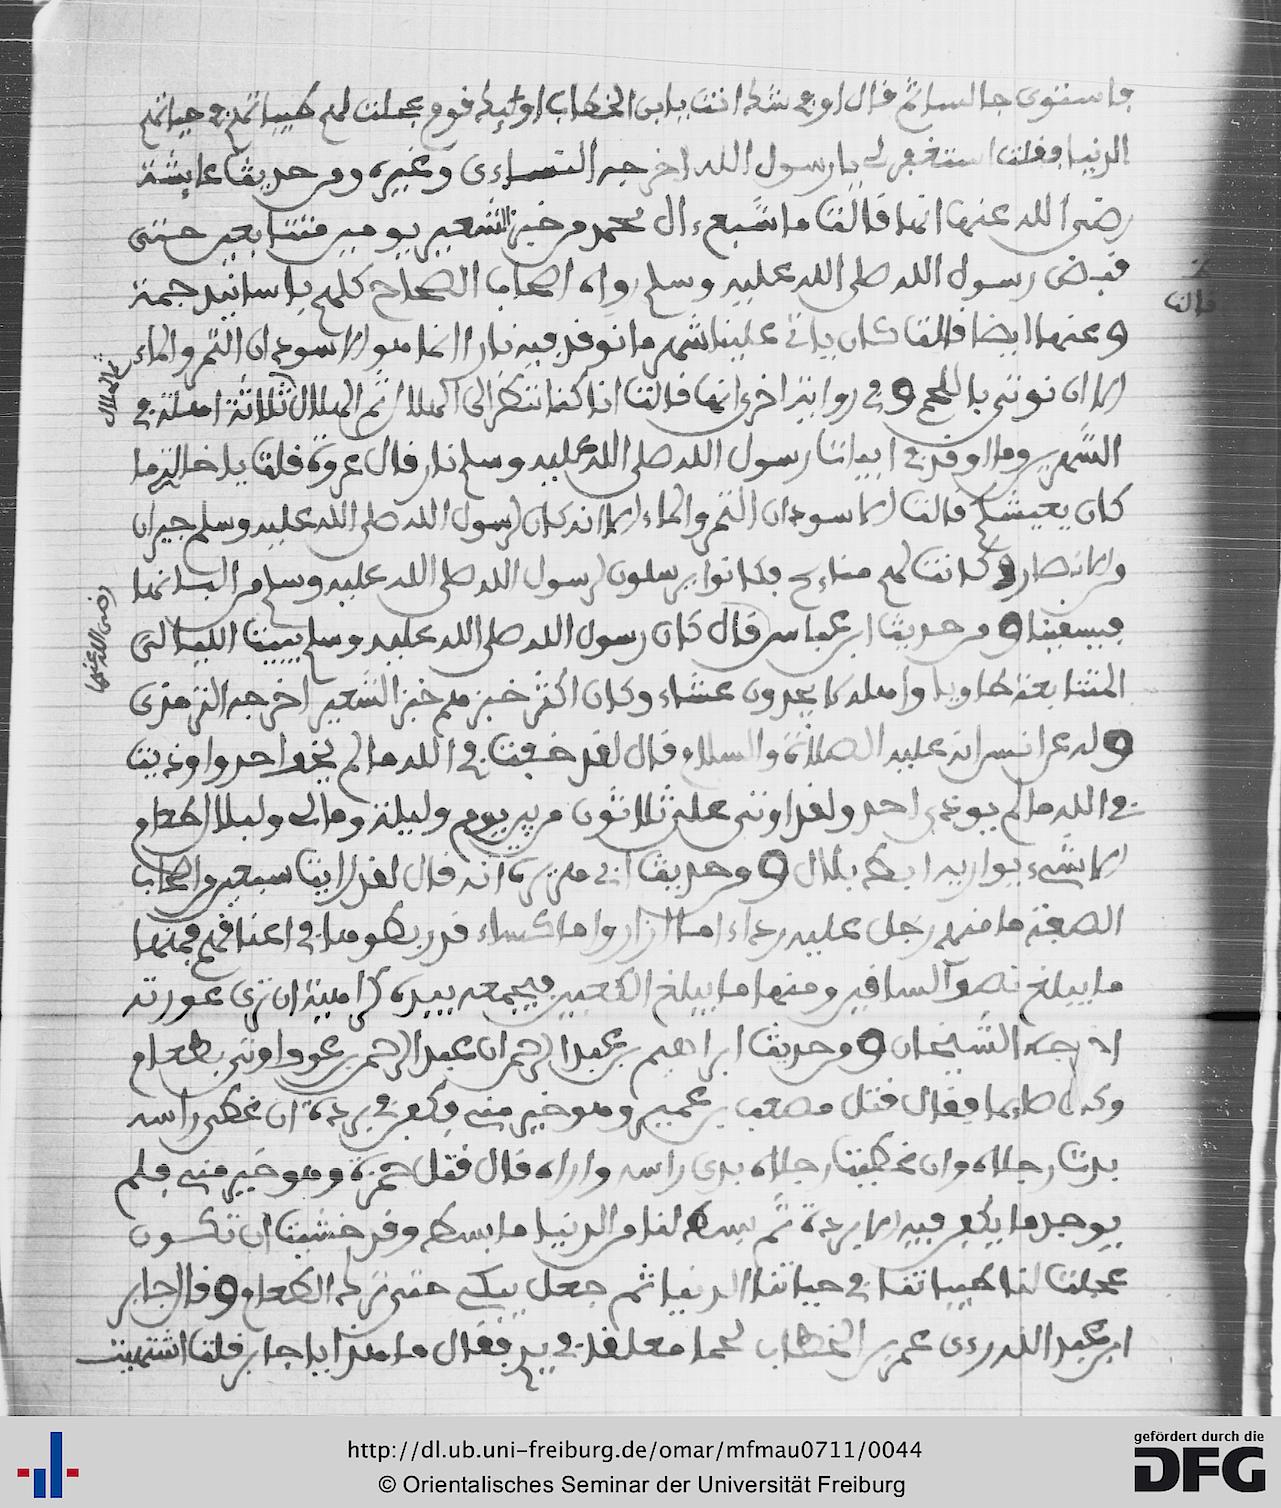 فاستوى جالسا ثم قال او في شك انت يا ابن الخطاب اوليك قوم عجلت لهم طيباتهم في حياتهم
الدنيا فقلت استغفر لي يا رسول الله اخرجه النساءى وغيره ومن حديث عايشة
رضى الله عنها انها قالت ما شبع ءال محمد من خبز الشعير يومين متتابعين حتى
قبض رسول الله صلى الله عليه وسلم رواه اصحاب الصحاح كلهم باسانيد جمة
وعنها ايضا قالت كان ياتي علينا شهر ما نوقد فيه نارا انما هو الاسودان التمر والماء
الا ان نوتى باللحم وفي رواية اخرى انها قالت انا كنا ننظر الى الهلال ثم الهلال ثلاثة اهلة في
ثم الهلال
الشهرين وما اوقد في ابيات رسول الله صلى الله عليه وسلم نار قال عروة فلت يا خالة ما
كان يعيشكم قالت الاسودان التمر والماء الا انه كان لرسول الله صلى الله عليه وسلم جيران
من الانصار وكانت لهم منايح فكانوا يرسلون لرسول الله صلى الله عليه وسلم من البانها
فيسقينا ومن حديث ابن عباس قال كان رسول الله صلى الله عليه وسلم يبيت الليالى
رضى الله عنهما
المتتابعة طاويا واهله لا يجدون عشاء وكان اكثر خبزهم خبز الشعير اخرجه الترمذى
وله عن انس انه عليه الصلاة والسلام قال لقد خفت في الله ما لم يخف احد واوذيت
في الله ما لم يوذى احد ولقد اوتى على ثلاثون من بين يوم وليلة وما لى ولبلال طعام
الا شىء يواريه ابط بلال وحديث ابي هريرة انه قال لقد رايت سبعين من اصحاب
الصفة ما منهم رجل عليه رداء اما ازار واما كساء قد ربطوها في اعناقهم فمنها
ما يبلغ نصف الساقين ومنها ما يبلغ الكعبين فيجمعه بيده كراهية ان ترى عورته
اخرجه الشيخان وحديث ابراهيم بن عبد الرحمن ان عبد الرحمن بن عوف اوتى بطعام
وكان صايما فقال قتل مصعب بن عمير وهو خير منى فكفن في بردة ان غطى راسه
بدت رجلاه وان غطيت رجلاه بدى راسه واراه قال قتل حمزة وهو خير منى فلم
يوجد ما يكفن فيه الا بردة ثم بسط لنا من الدنيا ما بسط وقد خشيت ان تكون
عجلت لنا طيباتنا في حياتنا الدنيا ثم جعل يبكى حتى ترك الطعام وقال جابر
ابن عبد الله رءى عمر بن الخطاب لحما معلقا في يدي فقال ما هذا يا جابر فلت اشتهيت
http://dl.ub.uni-freiburg.de/omar/mfmau0711/0044
© Orientalisches Seminar der Universität Freiburg
gefördert durch die
DFG